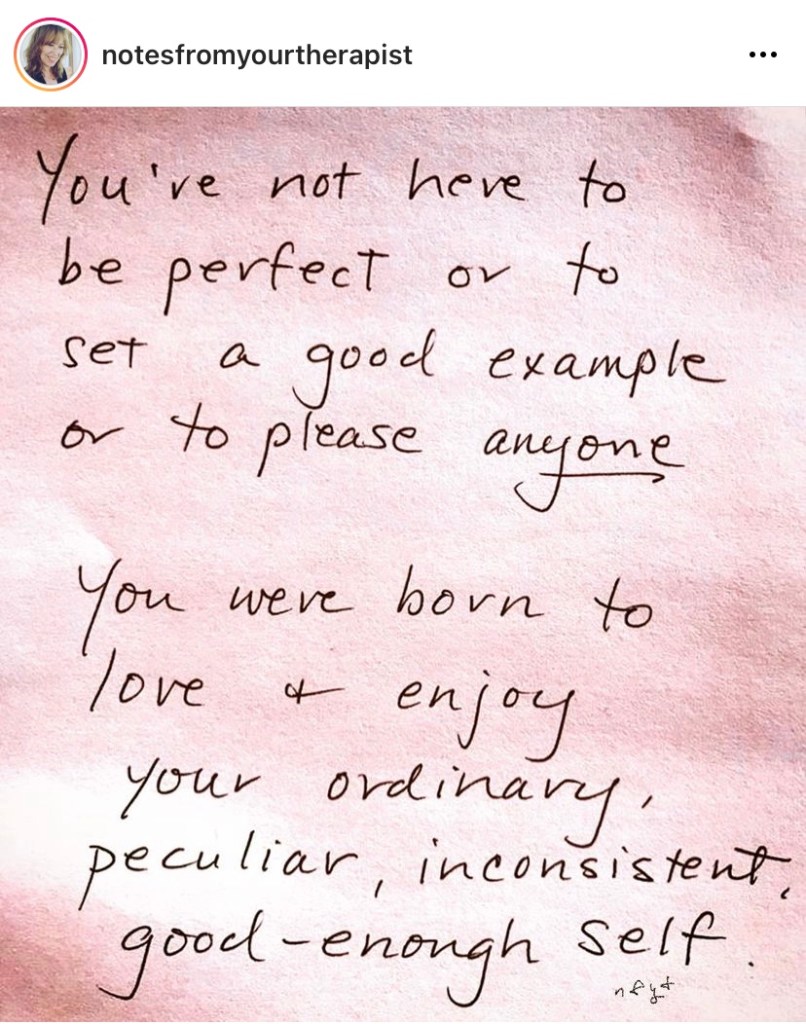 notesfromyourtherapist
You've not here to
be perfect or to
set a good example
or to please anyone
You were born to
love & enjoy
your ordinary,
peculiar, inconsistent,
good-enough self.
nfyt